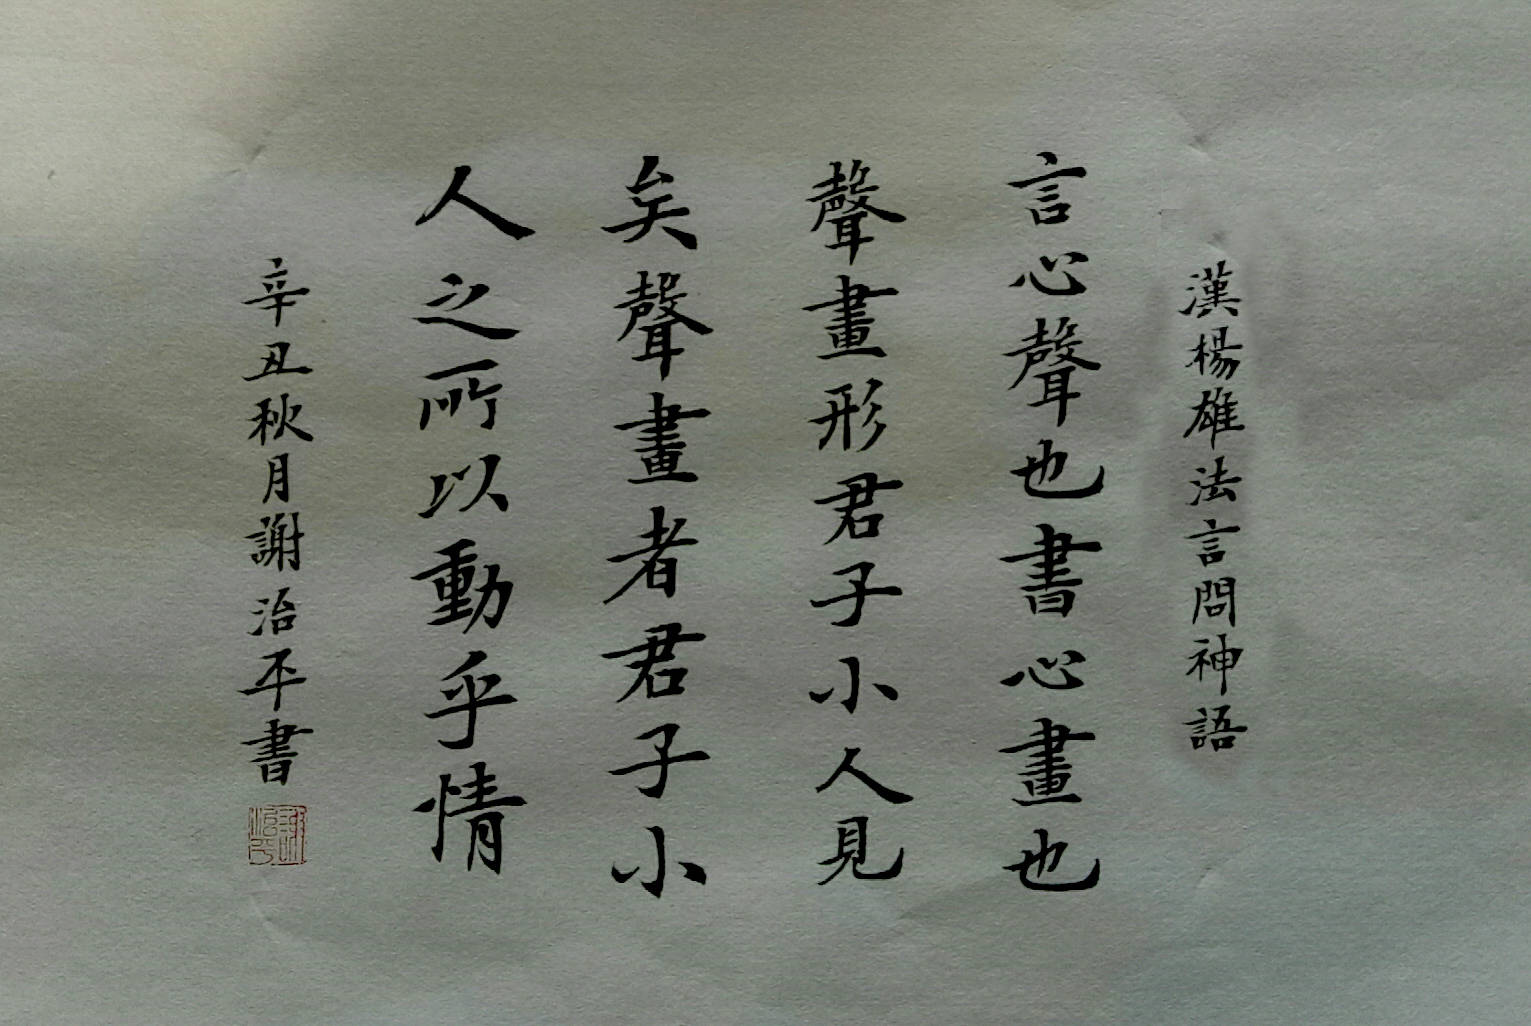 漢楊雄法言問神語
言心聲也書心畫也
聲畫形君子小人見
矣聲畫者君子小
人之所以動乎情
辛丑秋月謝治平書
謝治平